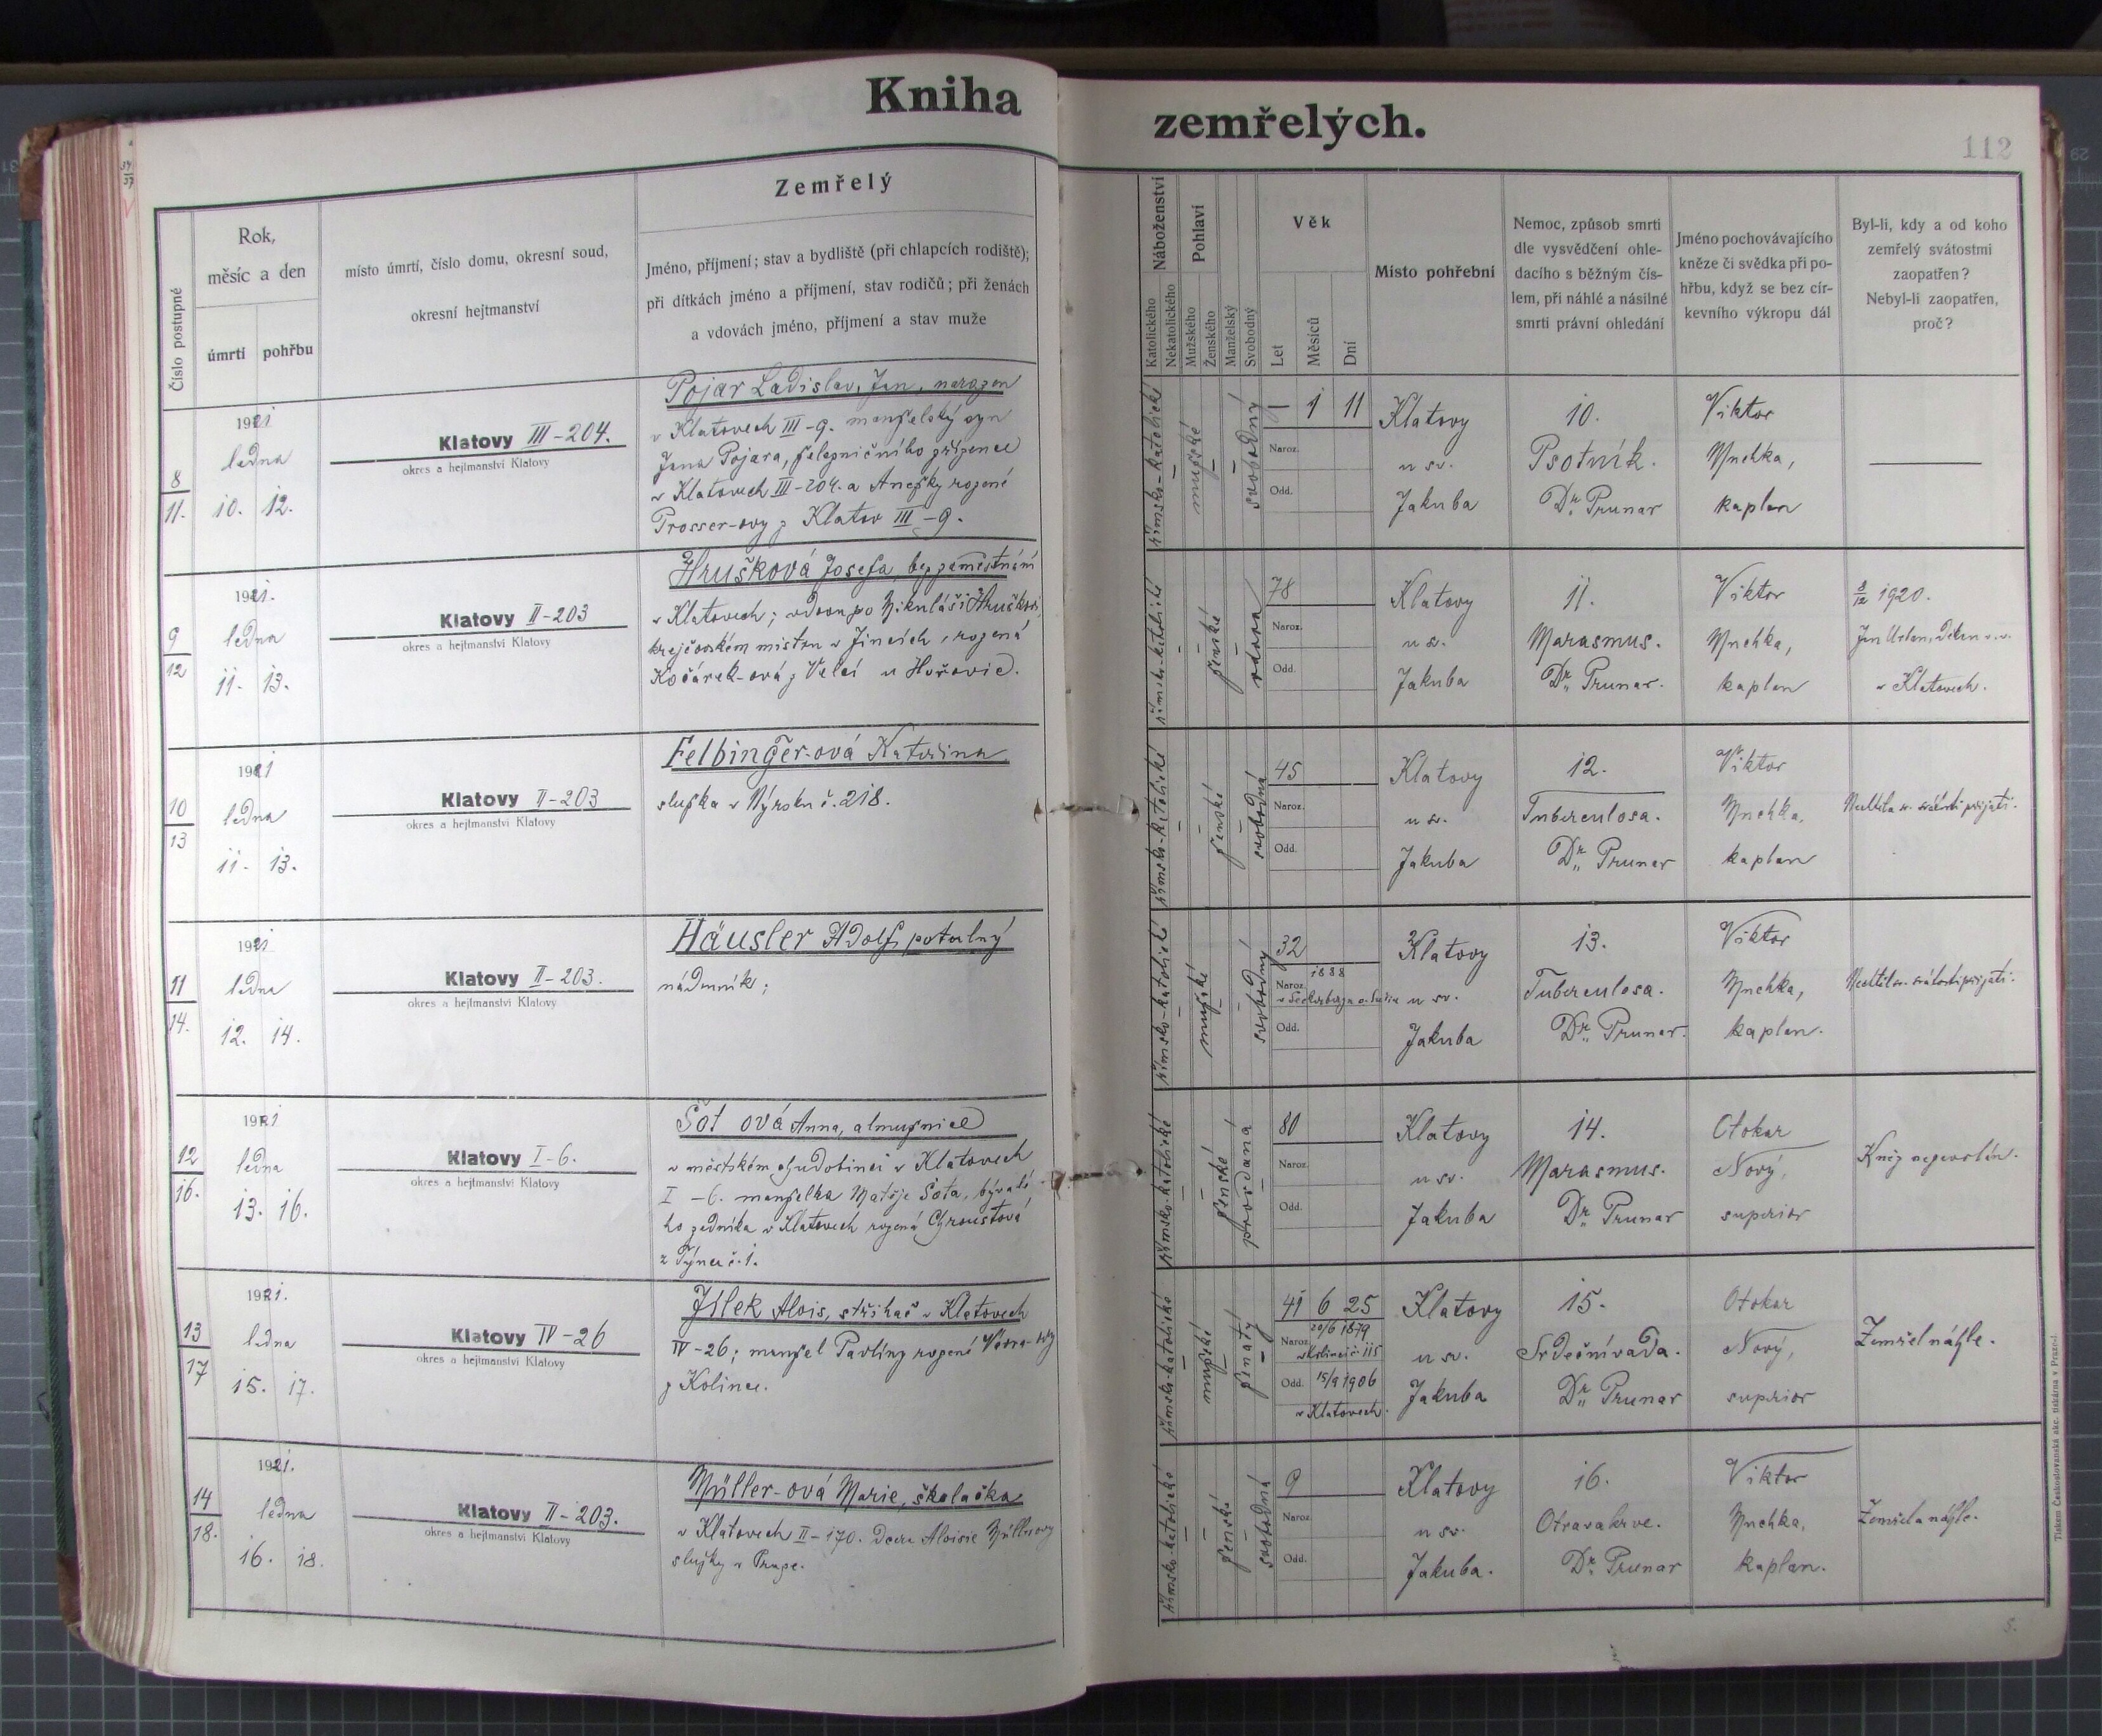 Kniha
zemřelých.
112
Číslo postupné
Rok,
měsíc a den
úmrtí
pohřbu
místo úmrtí, číslo domu, okresní soud,
okresní hejtmanství
Zemřelý
Jméno, příjmení; stav a bydliště (při chlapcích rodiště);
při dítkách jméno a příjmení, stav rodičů; při ženách
a vdovách jméno, příjmení a stav muže
Náboženství
Katolického
Nekatolického
Pohlaví
Mužského
Ženského
Manželský
Svobodný
Věk
Let
Měsíců
Dní
Místo pohřební
Nemoc, způsob smrti
dle vysvědčení ohle-
dacího s běžným čís-
lem, při náhlé a násilné
smrti právní ohledání
Jméno pochovávajícího
kněze či svědka při po-
hřbu, když se bez cír-
kevního výkropu dál
Byl-li, kdy a od koho
zemřelý svátostmi
zaopatřen?
Nebyl-li zaopatřen,
proč?
8
11.
1921
ledna
10. 12.
Klatovy III-204.
okres a hejtmanství Klatovy
Pojar Ladislav, Jan, narozen
v Klatovech III-9. manželský syn
Jana Pojara, železničního zřízence
v Klatovech III-204. a Anežky rozené
Prosser-ovy z Klatov III-9.
římsko-katolické
mužské
svobodný
1 11
Naroz.
Odd.
Klatovy
u sv.
Jakuba
10.
Psotník.
Dr. Prunar
Viktor
Mnehka,
kaplan
9
12
1921.
ledna
11. 13.
Klatovy II-203
okres a hejtmanství Klatovy
Hrušková Josefa, bez zaměstnání
v Klatovech; vdova po Mikuláši Hruškovi,
krejčovském mistru v Jincích, rozená
Kočárek-ová z Velcí u Hořovic.
římsko-katolické
ženské
vdova
78
Naroz.
Odd.
Klatovy
u sv.
Jakuba
11.
Marasmus.
Dr. Prunar.
Viktor
Mnehka,
kaplan
8/12 1920.
Jan Urban, děkan v. v.
v Klatovech.
10
13
1921
ledna
11. 13.
Klatovy II-203
okres a hejtmanství Klatovy
Felbinger-ová Kateřina
služka v Výrubu č. 218.
římsko-katolické
ženské
svobodná
45
Naroz.
Odd.
Klatovy
u sv.
Jakuba
12.
Tuberculosa.
Dr. Prunar
Viktor
Mnehka,
kaplan
Nechtěla sv. svátosti přijati.
11
14.
1921
ledna
12. 14.
Klatovy II-203.
okres a hejtmanství Klatovy
Häusler Adolf, potulný
nádenník;
římsko-katolické
mužské
svobodný
32
1888
Naroz.
Odd.
Klatovy
u sv.
Jakuba
13.
Tuberculosa.
Dr. Prunar.
Viktor
Mnehka,
kaplan.
Nechtěl sv. svátosti přijati.
12
16.
1921
ledna
13. 16.
Klatovy I-6.
okres a hejtmanství Klatovy
Šot ová Anna, almužnice
v městském chudobinci v Klatovech
I-6. manželka Matěje Šota, bývalé-
ho zedníka v Klatovech rozená Chroustová
z Týnce č. 1.
římsko-katolické
ženské
provdaná
80
Naroz.
Odd.
Klatovy
u sv.
Jakuba
14.
Marasmus.
Dr. Prunar
Otokar
Nový,
superior
Kněz nepovolán.
13
17
1921.
ledna
15. 17.
Klatovy IV-26
okres a hejtmanství Klatovy
Jílek Alois, střihač v Klatovech
IV-26; manžel Pavlíny rozené Vávra-ovy
z Kolince.
římsko-katolické
mužské
ženatý
41 6 25
20/6 1879
Naroz. v Kolinci č. 115
Odd. 15/9 1906
v Klatovech.
Klatovy
u sv.
Jakuba
15.
Srdeční vada.
Dr. Prunar
Otokar
Nový,
superior
Zemřel náhle.
14
18.
1921.
ledna
16. 18.
Klatovy II-203.
okres a hejtmanství Klatovy
Müller-ová Marie, školačka
v Klatovech II-170. dcera Aloisie Müllerovy
služky v Praze.
římsko-katolické
ženské
svobodná
9
Naroz.
Odd.
Klatovy
u sv.
Jakuba.
16.
Otrava krve.
Dr. Prunar
Viktor
Mnehka,
kaplan.
Zemřela náhle.
Tiskem Českoslovanská akc. tiskárna v Praze-I.
5.